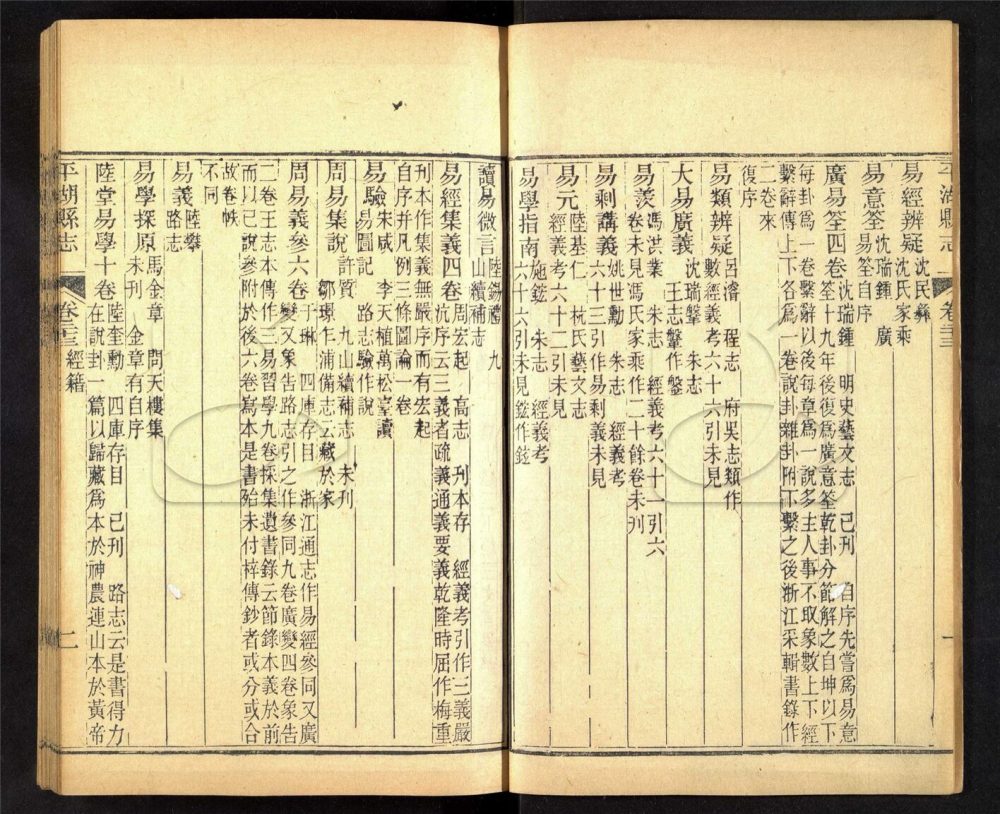 平湖縣志 卷二三 一
易經辨疑 沈民彝 沈氏家乘
易意筌 沈瑞鍾 廣易筌自序
廣易筌四卷 沈瑞鍾 明史藝文志 已刊 自序先嘗爲易意
筌十九年後復爲廣意筌乾卦分節解之自坤以下
每卦爲一卷繫辭以後每章爲一說多主人事不取象數上下經
繫辭傳上下各爲一卷說卦雜卦附下繫之後浙江采輯書錄作
二卷來
復序
易類辨疑 呂濬 程志 府吳志類作
數經義考六十六引未見
大易廣義 沈瑞鏧 朱志
王志鏧作鑿
易羨 馮洪業 朱志 經義考六十一引六
卷未見馮氏家乘作二十餘卷未刋
易剩講義 姚世勳 朱志 經義考
六十三引作易剩義未見
易元 陸基仁 杭氏藝文志
經義考六十二引未見
易學指南 施鎡 朱志 經義考
六十六引未見鎡作鉉
讀易微言 陸錫禮 九
山續補志
易經集義四卷 周宏起 高志 刋本存 經義考引作三義嚴
沆序云三義者疏義通義要義乾隆時屈作梅重
刋本作集義無嚴序而有宏起
自序并凡例三條圖論一卷
易驗 宋咸 李天植萬松臺讀
易圖記 路志驗作說
周易集說 許質 九山續補志 未刋
鄒璟乍浦備志云藏於家
周易義參六卷 于琳 四庫存目 浙江通志作易經參同又廣
變又象告路志引之作參同九卷廣變四卷象告
二卷王志本傳作三易習學九卷採集遺書錄云節錄本義於前
而以己說參附於後六卷寫本是書殆未付梓傳鈔者或分或合
故卷帙
不同
易義 陸鏧
路志
易學探原 馬金章 問天樓集
未刋 金章有自序
陸堂易學十卷 陸奎勳 四庫存目 已刋 路志云是書得力
在說卦一篇以歸藏爲本於神農連山本於黃帝
平湖縣志 卷二三 經籍 二